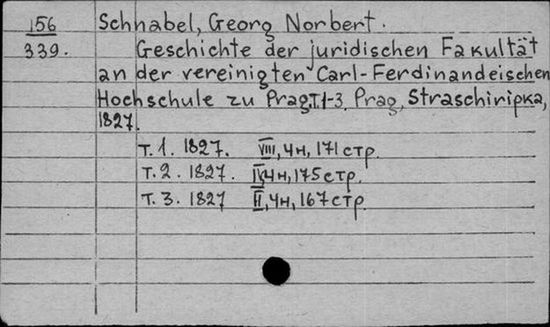 156 Schnabel, Georg Norbert.
339. Geschichte der juridischen Fakultät
an der vereinigten Carl-Ferdinandeischen
Hochschule zu Prag. T. 1-3 Prag, Straschiripka,
1827.
T. 1. 1827. VIII, 4н, 171 стр.
T. 2. 1827. IV, 4н, 175 стр.
T. 3. 1827 II, 4н, 167 стр.